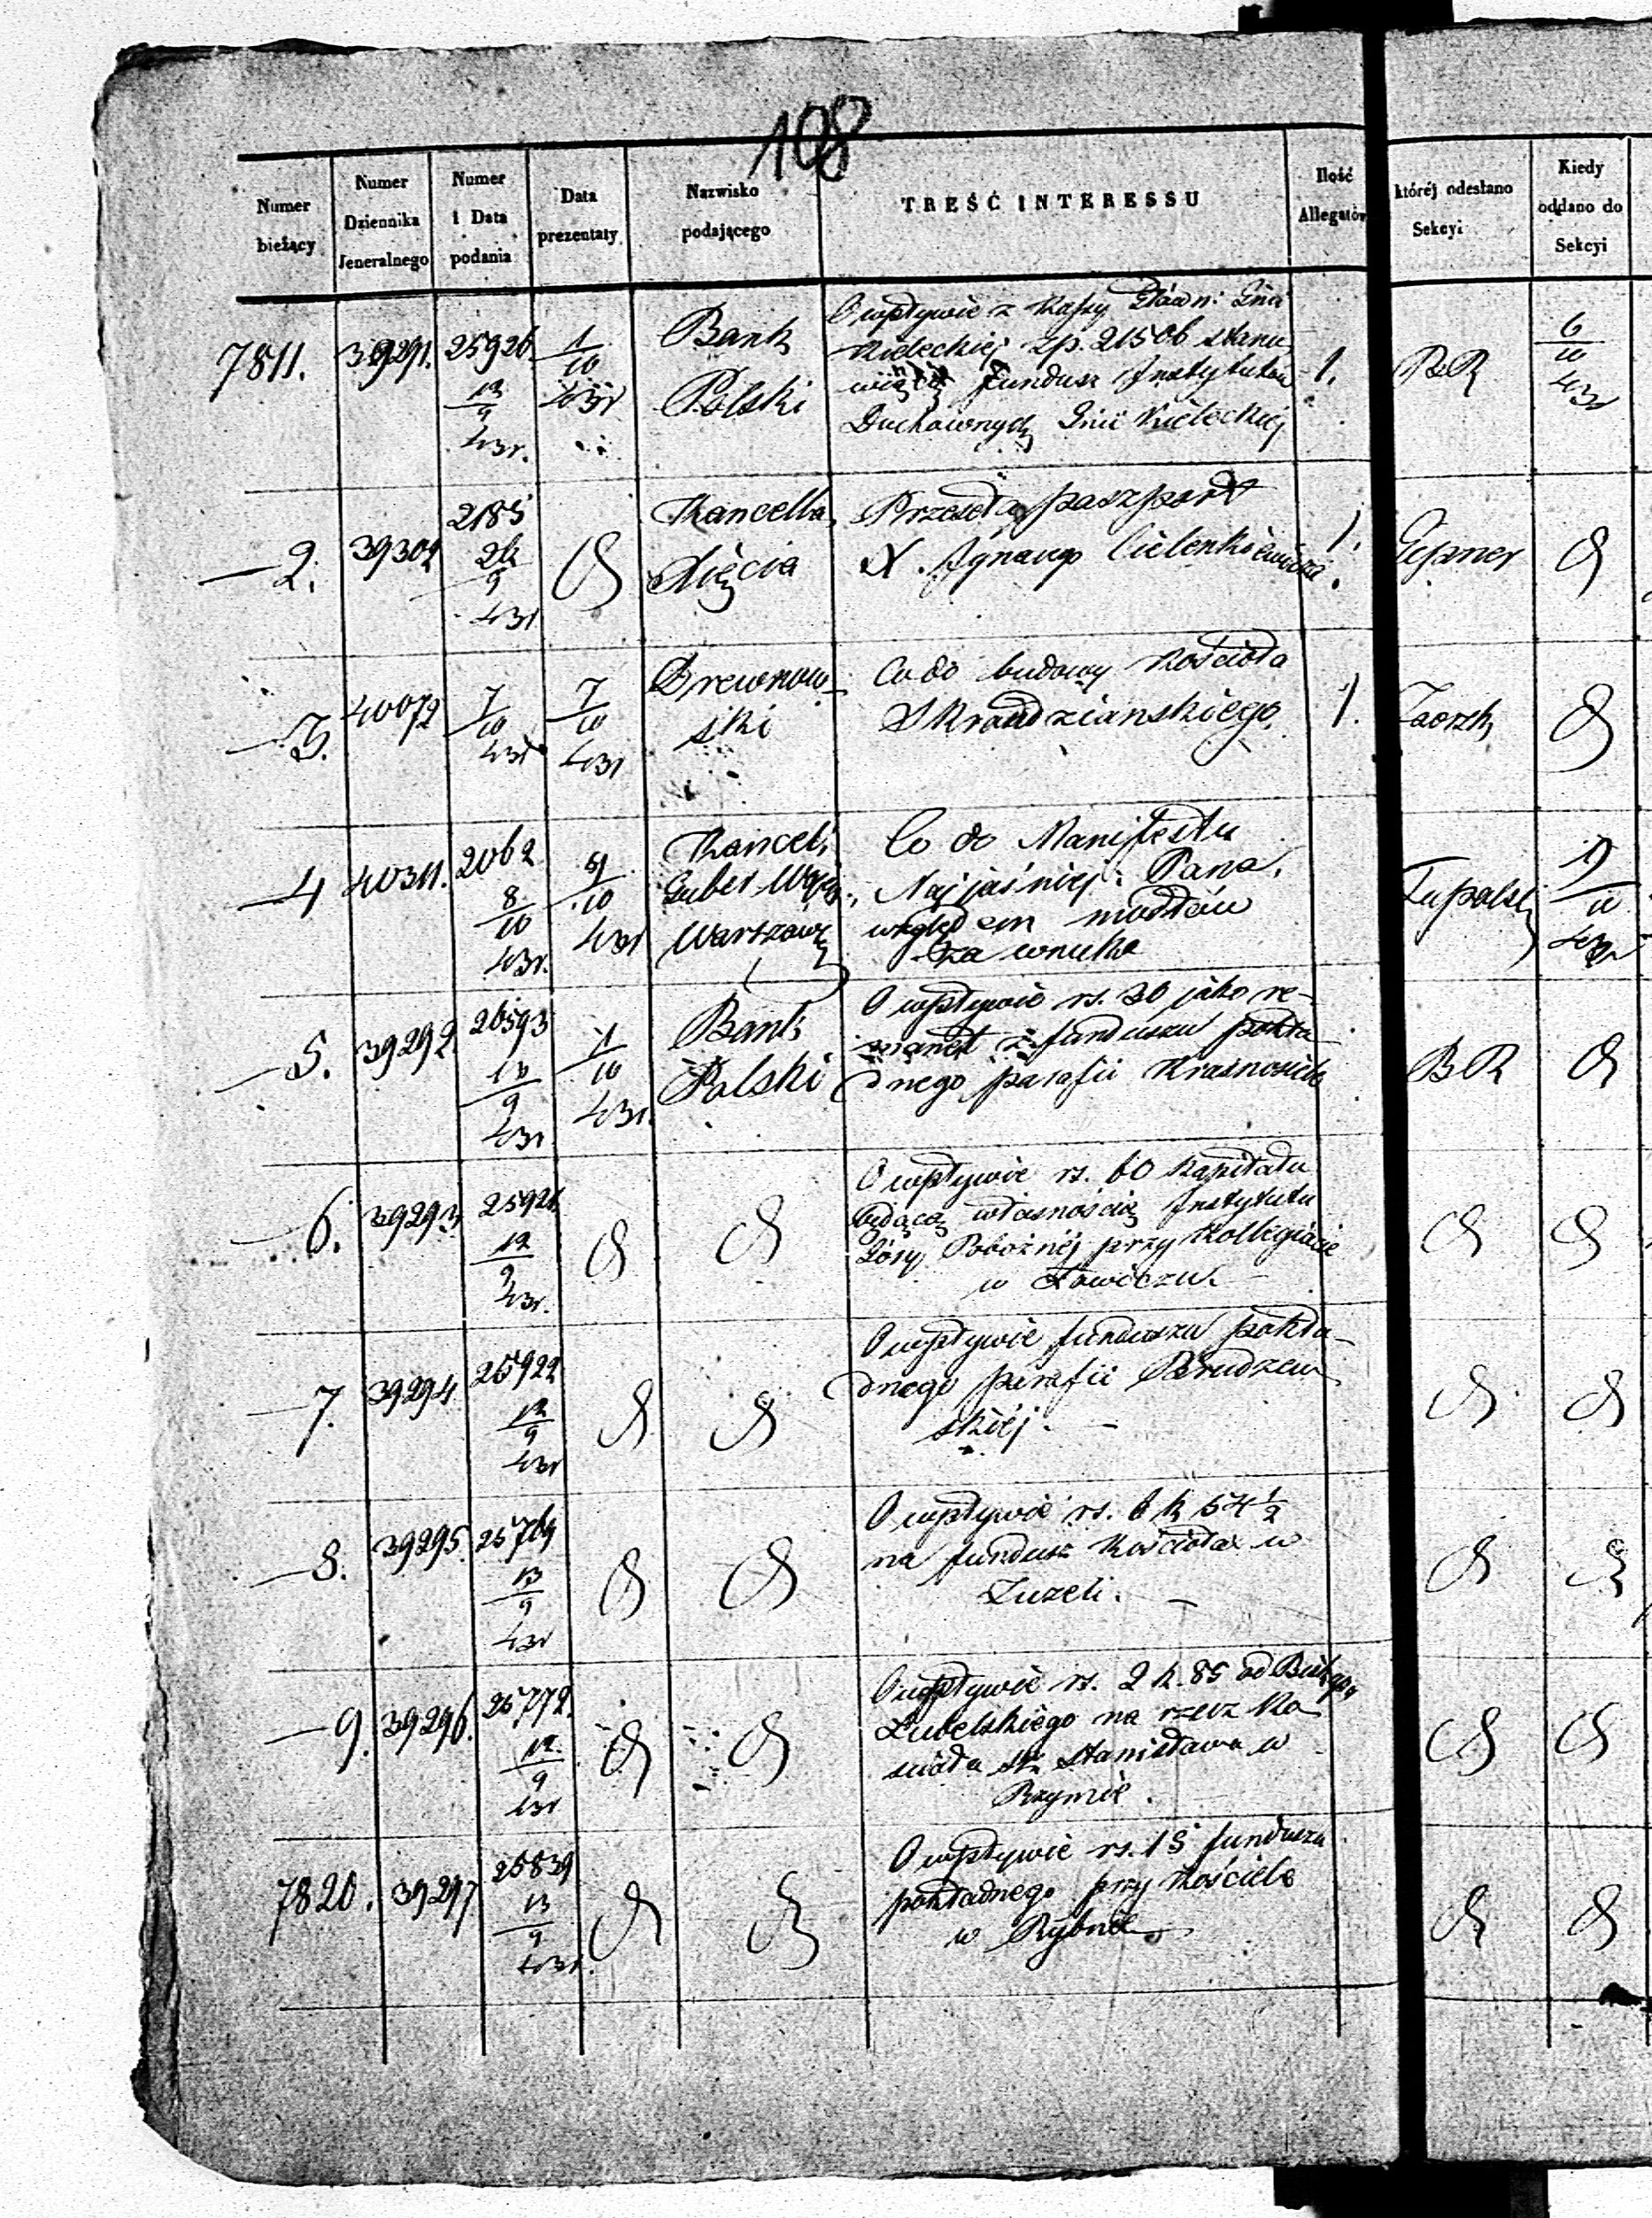 108
Numer bieżący
Numer Dziennika Jeneralnego
Numer i Data podania
Data prezentaty
Nazwisko podającego
TREŚĆ INTERESSU
Ilość Allegatów
której odesłano Sekcyi
Kiedy oddano do Sekcyi
7811. 39291. 25926 12/9 43r. 1/10 43r
Bank
Polski
O wpływie z Kassy Główn: Gńi
Kieleckiej zp. 21506 stano
wiące fundusz Instytutów
Duchownych Gnii Kieleckiej
1. BR 6/10 43r
2. 39302 2185 43r
Kancella.
Xięcia
Przeseła paszport
X. Ignacego
1.
3. 40072 7/10 43r 7/10 43r
Drewnow
ski
Co do budowy Kościoła
1.
4 40311. 2062 8/10 43r. 9/10 43r
Kancel.
Guber. Wojen.
Warszaw.
Co do Manifestu
Najjaśniej: Pana,
względem modłów
za wnuka
5. 39292. 10/9 43r. 1/10 43r.
Bank
Polski
O wpływie rs. 30 jako re-
manet z funduszu pokła-
dnego parafii
BR
6. 39293 12/9 43r.
O wpływie rs. 60 Kapitału
będącą własnością Instytutu
Góry Pobożnej przy Kollegiacie
w Łowiczu.
7. 39294 25922 12/9 43r
O wpływie funduszu pokła-
dnego parafii
skiej.
8. 39295. 13/9 43r
O wpływie rs. 6 k 67 1/2
na fundusz Kościoła w
Zuzeli.
9. 39296. 25772. 12/9 43r
O wpływie rs. 2 k. 85 od
Lubelskiego na rzecz Ko
ścioła Stanisława w
Rzymie.
7820. 39297 25839 13/9 43r.
O wpływie rs. 15 funduszu
pokładnego przy Kościele
w Rybnie